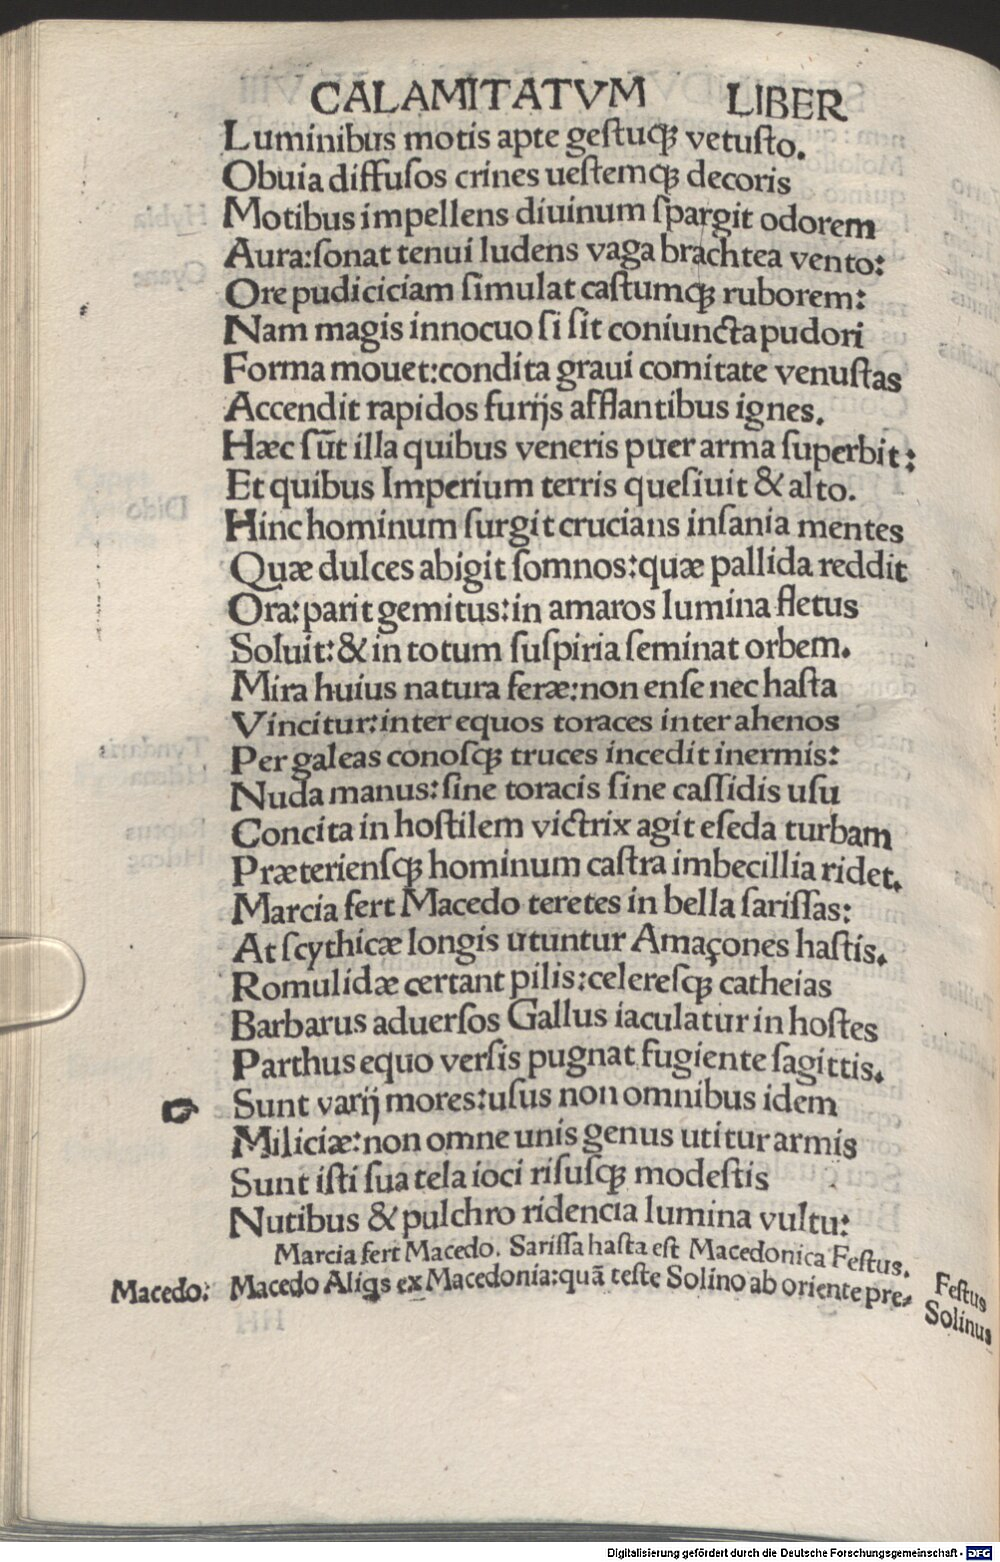 CALAMITATVM LIBER
Luminibus motis apte geſtuqꝫ vetuſto.
Obuia diffuſos crines ueſtemqꝫ decoris
Motibus impellens diuinum ſpargit odorem
Aura:ſonat tenui ludens vaga brachtea vento:
Ore pudiciciam ſimulat caſtumqꝫ ruborem:
Nam magis innocuo ſi ſit coniuncta pudori
Forma mouet:condita graui comitate venuſtas
Accendit rapidos furijs afflantibus ignes.
Hæc ſūt illa quibus veneris puer arma ſuperbit:
Et quibus Imperium terris queſiuit & alto.
Hinc hominum ſurgit crucians inſania mentes
Quæ dulces abigit ſomnos:quæ pallida reddit
Ora:parit gemitus:in amaros lumina fletus
Soluit:& in totum ſuſpiria ſeminat orbem.
Mira huius natura feræ:non enſe nec haſta
Vincitur:inter equos toraces inter ahenos
Per galeas conoſqꝫ truces incedit inermis:
Nuda manus:ſine toracis ſine caſſidis uſu
Concita in hoſtilem victrix agit eſeda turbam
Præterienſqꝫ hominum caſtra imbecillia ridet.
Marcia fert Macedo teretes in bella ſariſſas:
At ſcythicæ longis utuntur Amaçones haſtis.
Romulidæ certant pilis:celereſqꝫ catheias
Barbarus aduerſos Gallus iaculatur in hoſtes
Parthus equo verſis pugnat fugiente ſagittis.
☞ Sunt varij mores:uſus non omnibus idem
Miliciæ:non omne unis genus utitur armis
Sunt iſti ſua tela ioci riſuſqꝫ modeſtis
Nutibus & pulchro ridencia lumina vultu:
Marcia fert Macedo. Sariſſa haſta eſt Macedonica Feſtus.
Macedo: Macedo Aliqs ex Macedonia:quā teſte Solino ab oriente pre-
Feſtus
Solinus
Digitalisierung gefördert durch die Deutsche Forschungsgemeinschaft - DFG